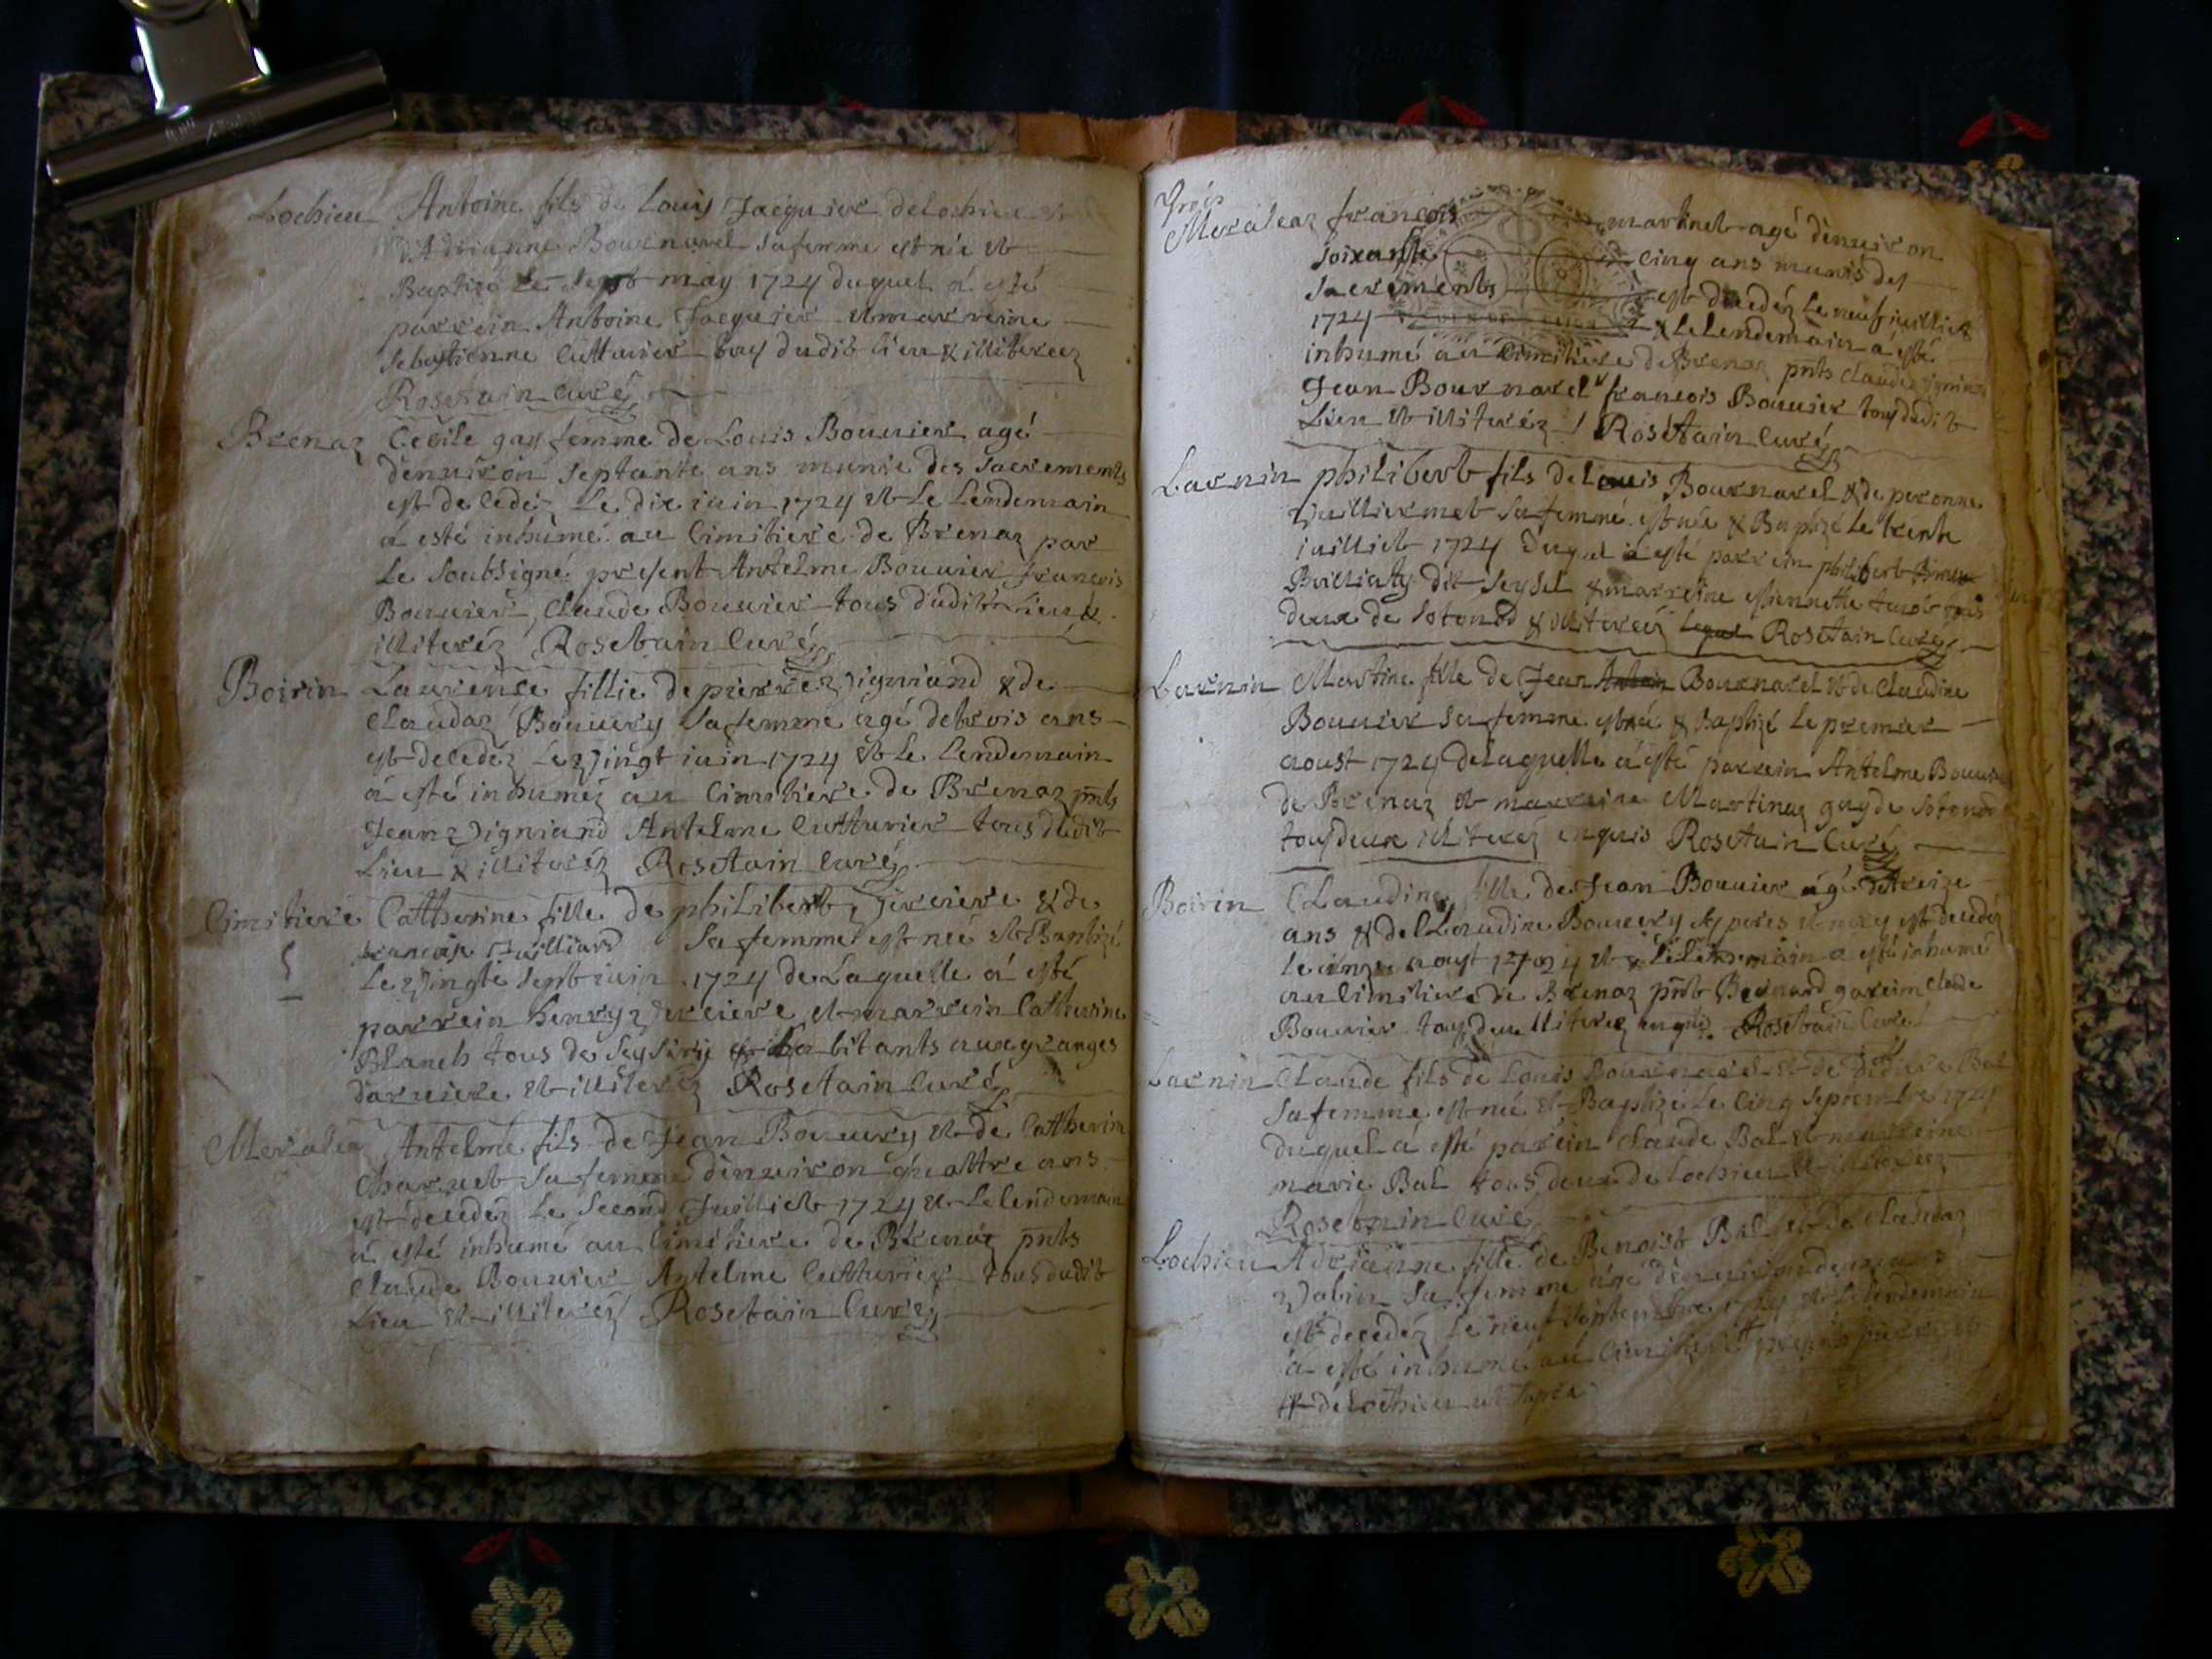 Lochieu Antoine fils de Louis Jacquier de Lochieu
d'Adrianne Bournarel sa femme est née et
Baptizé Le sept may 1724 duquel á esté
parrein Antoine Jacquier et marreine
Sebastienne Cutturier touy dudit lieu & illiterez
Rosettain curé
Brenaz Cecile gay femme de Louis Bouuier agé
dènuiron septante ans munie des sacrements
est decedé Le dix iuin 1724 et Le Lendemain
á esté inhùmé au Cimitiere de Brenaz par
Le soubsigné present Antelme Bouuier francois
Bouuier, Claude Bouuier tous dudit lieu &
illiteréz Rosettain Curé
Boirin Laurense fillie de pierre Vigniand & de
Claudaz Bouuery sa femme agé de trois ans
est decedéz Le Vingt iuin 1724 et Le Lendemain
á esté inhuméz au Cimitiere de Brenaz pnts
Jean Vigniand Antelme Cutturier tous dudit
Lieu & illiteréz Rosettain curé
Cimitiere Catherine fille de philibert & de
francoise sa femme est neé et Baptizé
Le Vingte sept iuin 1724 de Laquelle á esté
parrein henry et marrein Catherine
Blanch tous de habitants aux granges
et illiteréz Rosettain Curé
Meraleaz Antelme fils de Jean Bouuery et de Catherin
Charuet sa femme dènuiron quattre ans
est decedéz Le second Juilliet 1724 et Le lendemain
á esté inhumé au Cimitiere de Brenaz pnts
Claude Bouuier Antelme Cutturier tous dudit
Lieu et illiteréz Rosettain Curé
Trois
Meraleaz francois martinet agé dènuiron
soixante cinq ans munis des
sacrements est decedéz Le neuf iuilliet
1724 & Le lendemain á esté
inhumé au Cimitiere de Brenaz pnts Claude
Jean Bournarel francois Bouuier touy dudit
Lieu et illiteréz Rosettain Curé
Larnin philibert fils de Louis Bournarel & de peronne
Juilliermet sa femme est née & Baptizé Le trente
iuilliet 1724 duquel á esté parrein philibert
dit Seysel & marreine estiennette
deux de Sotonod & illiteréz Rosettain Curé
Larnin Martine fille de Jean Bournarel et de Claudine
Bouuier sa femme est née & Baptizé Le premier
aoust 1724 de Laquelle á esté parrein Antelme Bouuier
de Brenaz et marreine Martinaz guy de Sotonod
tous deux illiteréz enquis Rosettain Curé
Boirin Claudine fille de Jean Bouuier agé de treize
ans & de Claudine Bouuery est decedéz
Le aoust 1724 et Le Lendemain a esté inhumé
au Cimitiere de Brenaz pnts Bernard Claude
Bouuier Rosettain Curé
Larnin Claude fils de Louis Bournarel et de Bal
sa femme est née et Baptizé Le Cinq septembre 1724
duquel á esté parein Claude Bal et marreine
marie Bal tous deux de Lochieu et illiteréz
Rosettain Curé
Lochieu Adrianne fille de Benoist Bal et de Claudaz
sa femme
est decedéz Le neuf septembre 1724 et Le lendemain
á esté inhumé au Cimitiere
de Lochieu